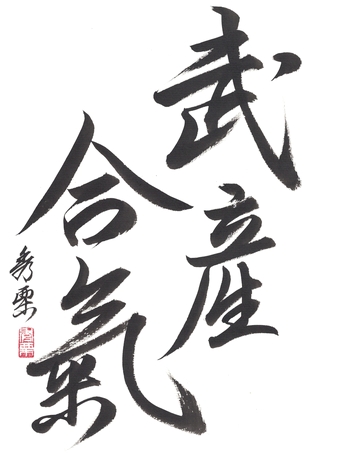 武産
合氣
秀栗